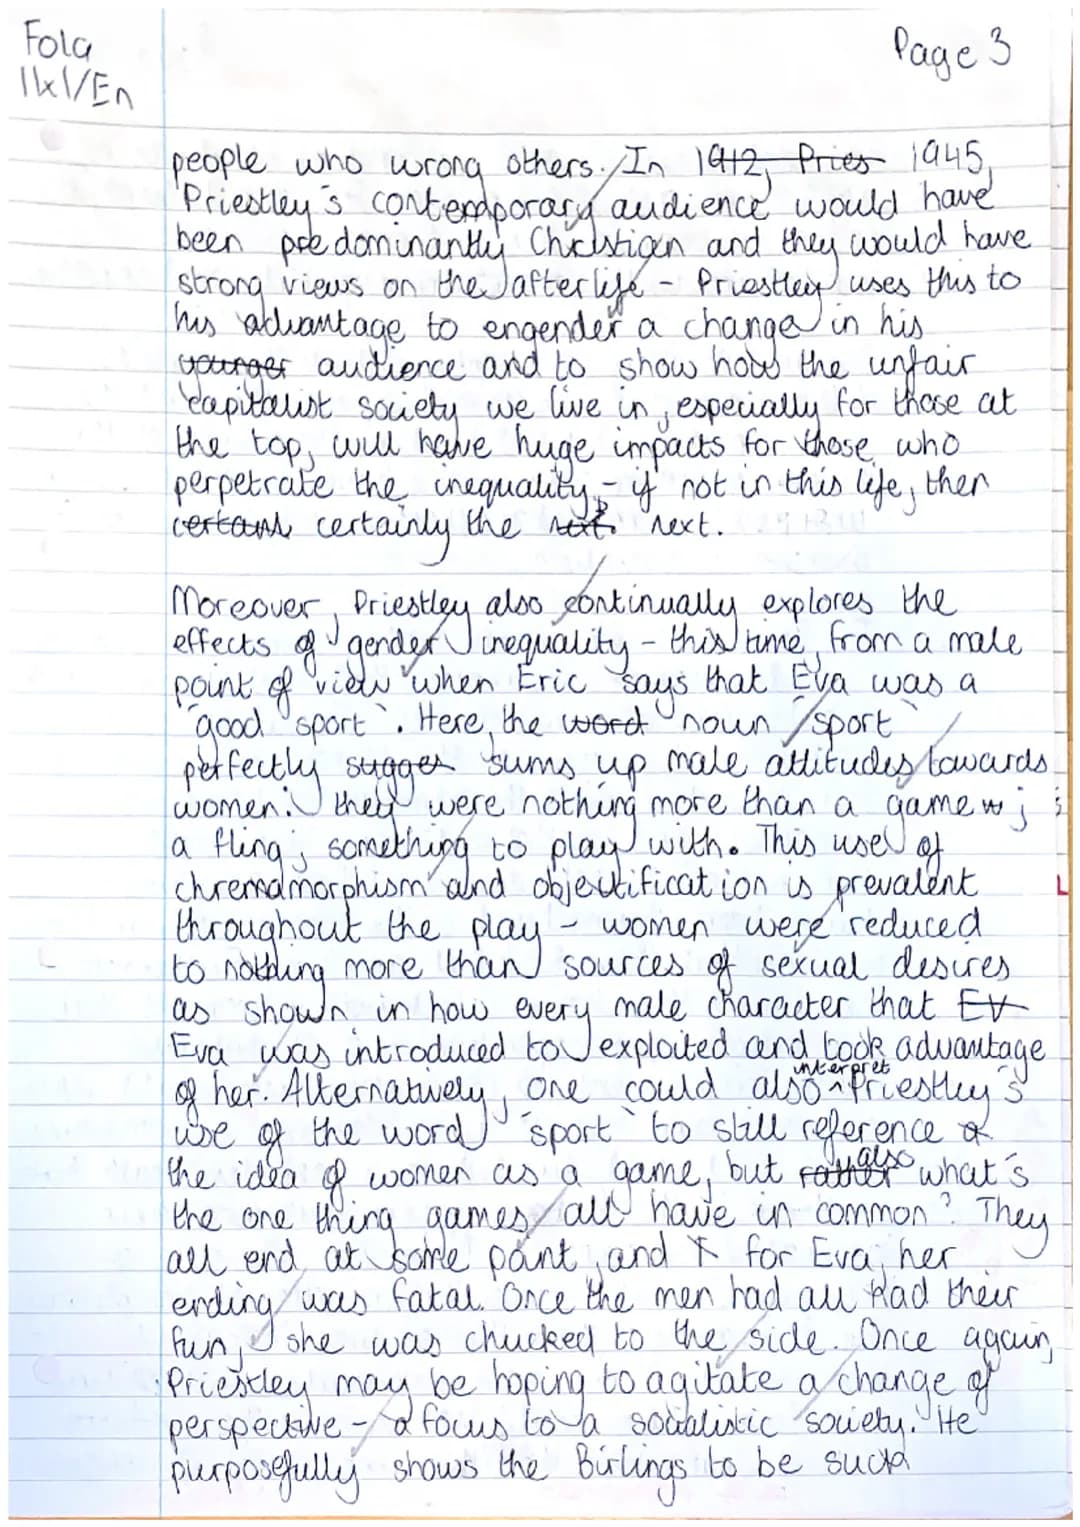 Fola
11x1/En
Page 3
people who wrong others. In 1912, Pries 1945,
Priestley's contemporary audience would have
been predominantly Christian and they would have
strong views on the afterlife - Priestley uses this to
his advantage to engender a change in his
younger audience and to show how the unfair
capitalist society we live in, especially for those at
the top, will have huge impacts for those who
perpetrate the inequality - if not in this life, then
certainl certainly the next. next.
Moreover, Priestley also continually explores the
effects of gender inequality - this time, from a male
point of view when Eric says that Eva was a
"good sport". Here, the word noun "sport"
perfectly sugges sums up male attitudes towards
women: they were nothing more than a game w ;
a fling; something to play with. This use of
chremamorphism and objectification is prevalent
throughout the play - women were reduced
to nothing more than sources of sexual desires
as shown in how every male character that Ev
Eva was introduced to exploited and took advantage
of her. Alternatively, one could also interpret Priestley's
use of the word "sport" to still reference
the idea of women as a game, but rather also what's
the one thing games all have in common? They
all end at some point, and for Eva, her
ending was fatal. Once the men had all had their
fun, she was chucked to the side. Once again,
Priestley may be hoping to agitate a change of
perspective - a focus to a socialistic society. He
purposefully shows the Birlings to be such